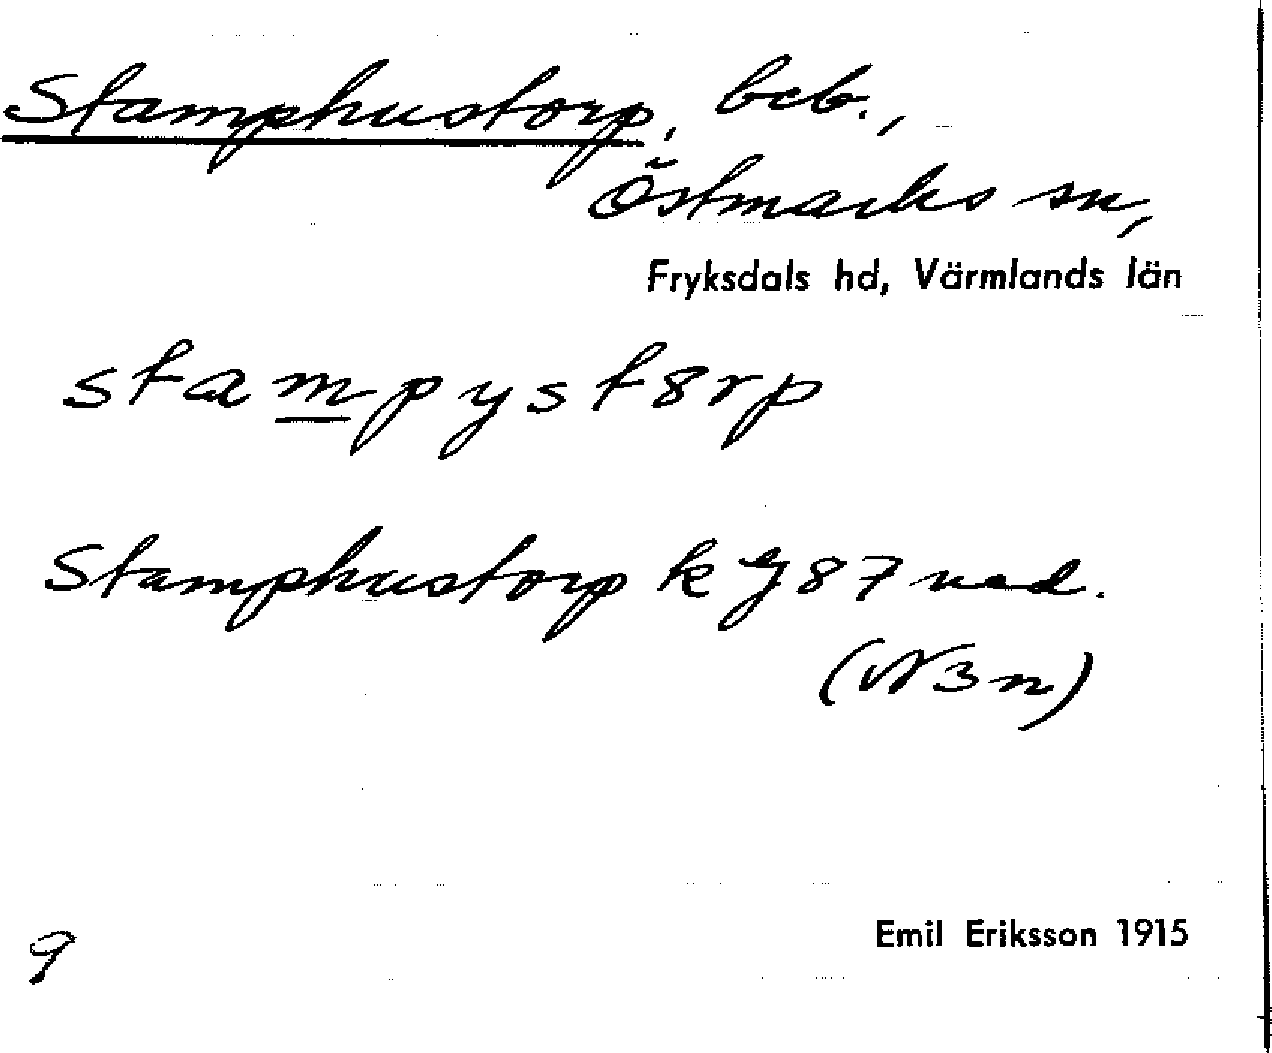 Stamphustorp, beb.,
Östmarks sn,
Fryksdals hd, Värmlands län
stampystørp
Stamphustorp k
(N3n)
9
Emil Eriksson 1915